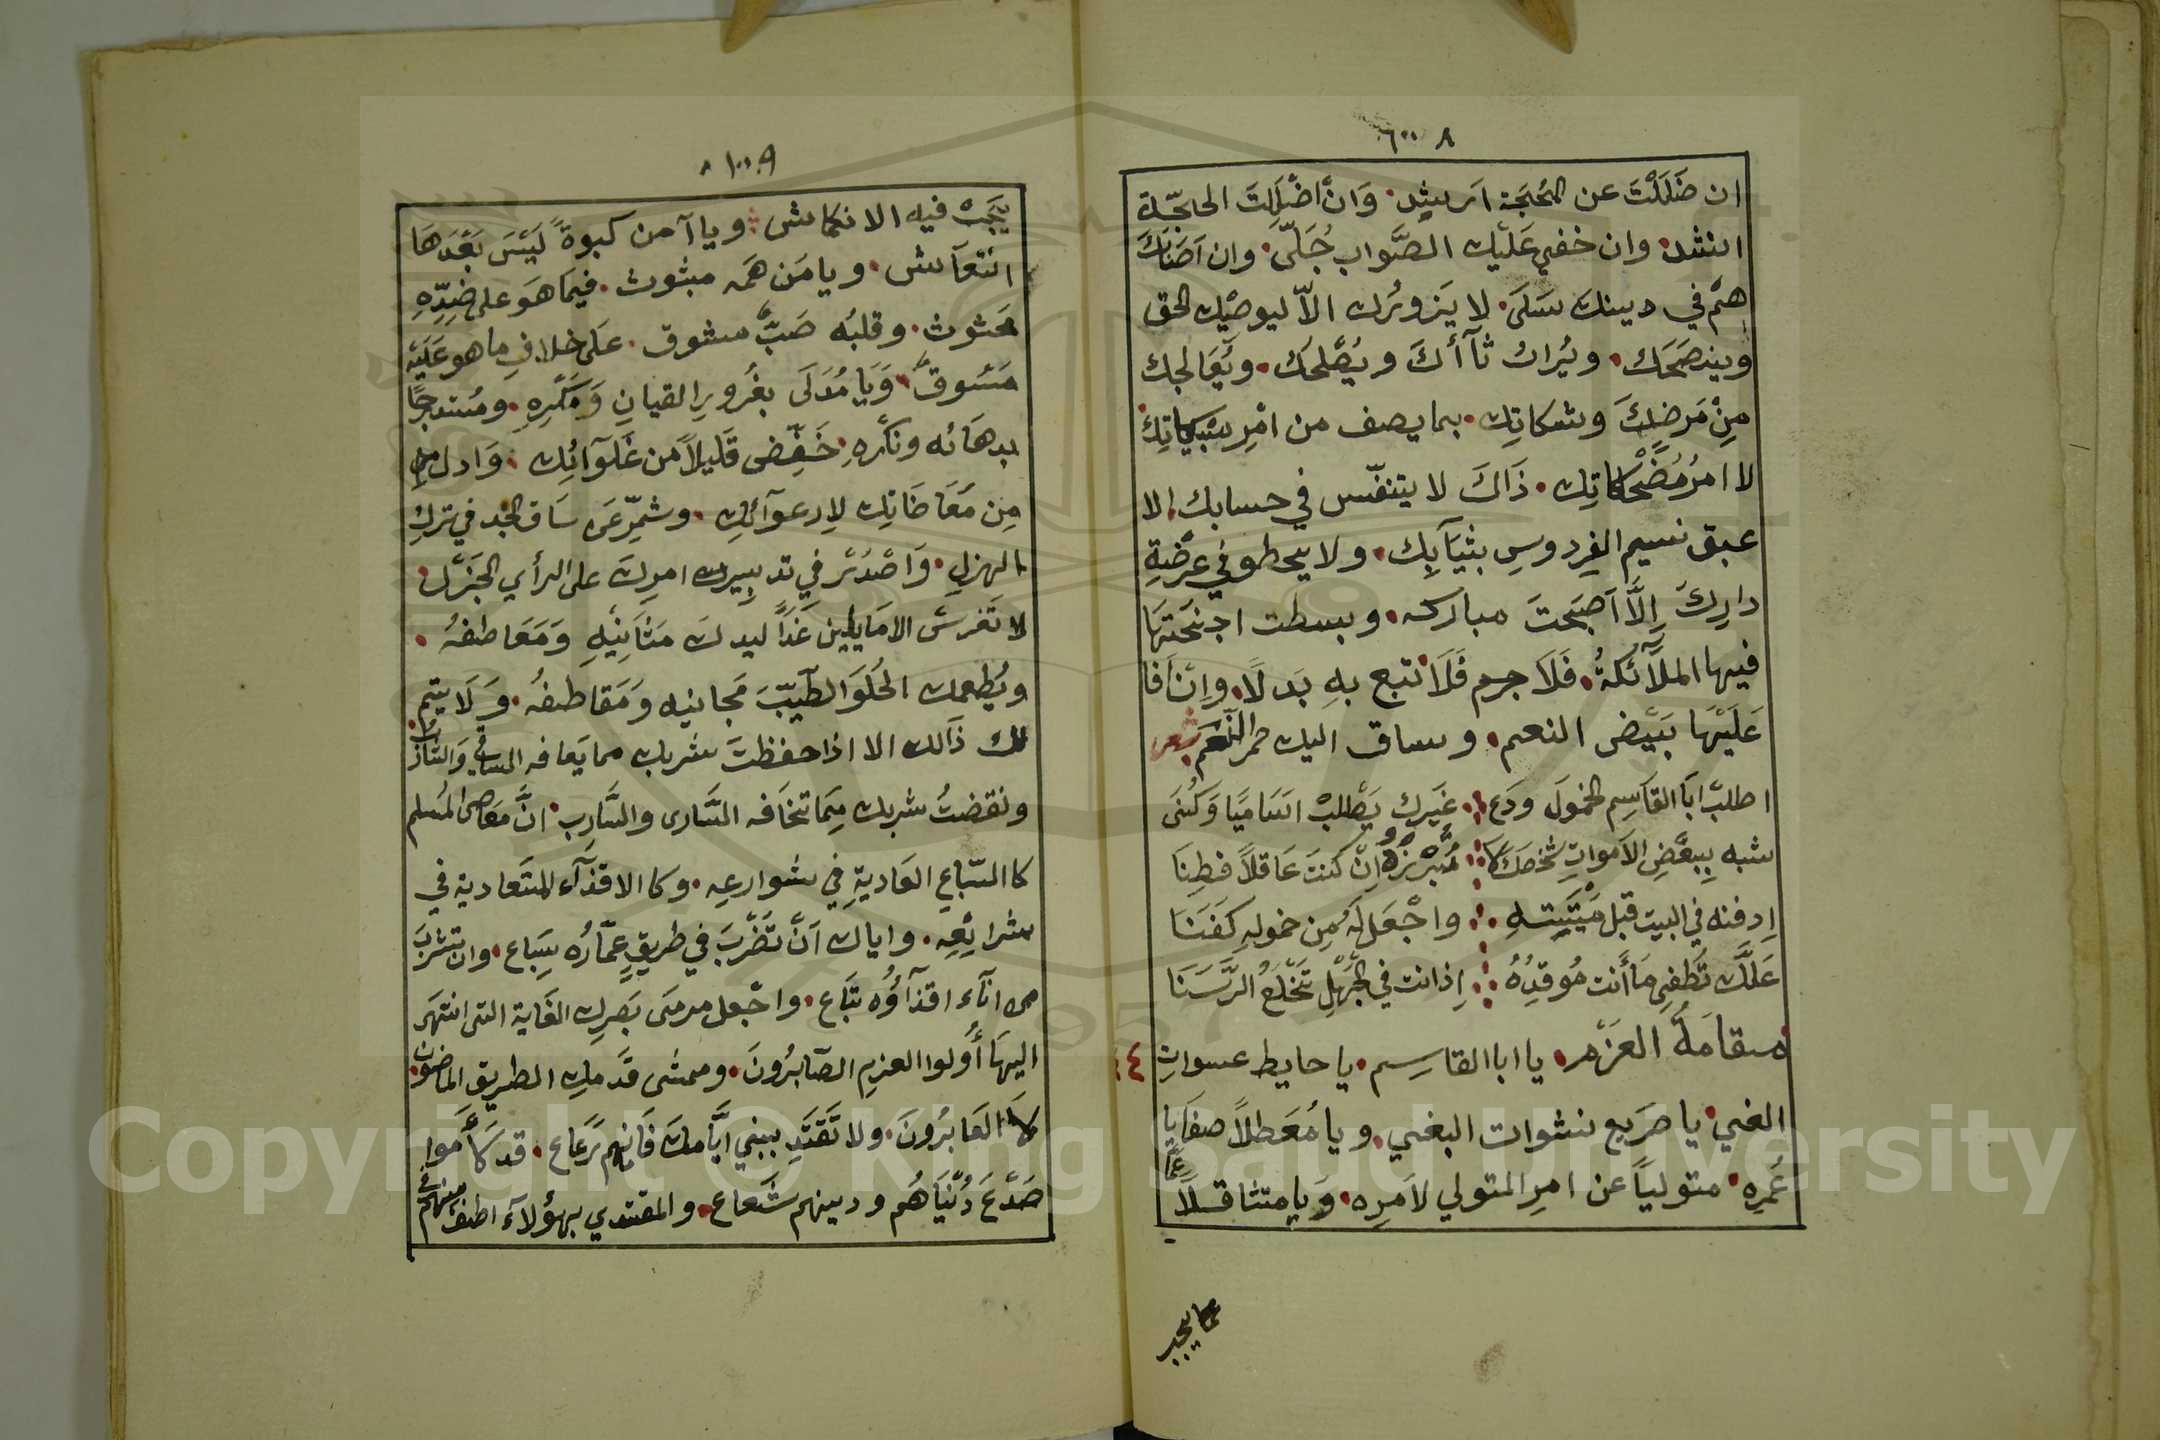 ٨ ٦٠٠
ان ضَلَلْتَ عن المُحَجَة ارشِد وَانْ اضْلَلتَ الحاجّة
انشد وان خفي عَلَيْك الصَّواب جُلّى وان اَصَابَكَ
هَمّ في دينك سَلَى لا يَزورُك الاّ ليوصيْك الحق
وينصَحَك ويُرابُ ثآأكَ ويُصْلحَك ويُعَالجك
مِنْ مَرضِكَ وشكاتِك بما يصف من امْرِ مُبْكياتِكَ
لا امرُ مُضْحكاتِك ذَاكَ لا يتنفّس في حسابك الا
عبق نسيم الفِردوسِ بثيَابِك ولا يخطو في عرْضةِ
دارِكَ اِلاَّ اَصبَحتَ مباركه وبسطت اجنحَتهَا
فيها الملآئكةُ فَلَا جرم فَلَا تبع بهِ بَدلًا وان اَفا
عَلَيْهَا بَيْض النعم وساق اليك حمر النَّعَم شعر
اطلبْ اَبَا القَاسِم الخمولَ ودَع غَيرك يَطْلبْ اسَاميًا وَكُنَى
شبه بِبعْضِ الاَمواتِ شخصكَ لا تُبْرِزْهُ اِنْ كنتَ عَاقلاً فطِنَا
اِدفنه في البيت قبل مَيْتَتِهِ واجْعَل لَهُ مِن خمولِهِ كَفَنَا
عَلَّك تُطفي مَا أَنت مُوقِدُهُ اِذ انت في الجَهْلِ تخْلَعُ الرَّسَنَا
مقامَةُ العَزْم يا ابا القاسِم يا خابط عشواتِ ٤٤
الغي يا صَريع نشوات البغي ويا مُعَطلاً صفَايا
عُمرِه متولياً عن امرِ المتولي لاَمرِه وَيا متثاقلاً عمّا
عما يجب
١٠٠٩
يَجَبْ فيه الانكماش ويا آمن كبوةً لَيْسَ بَعْدَهَا
انتعَاش ويا مَن هَمه مبثوث فيمَا هَو على ضِدّهِ
محثوث وقلبُه صَبٌّ مشوق عَلَى خلافِ ما هو عَلَيْهِ
مَسُوق وَيَا مُدَلَى بغُرورِ القيانِ وَمَكْرِهِ ومُستدرجًا
بدهَائه ونكْرهِ خَفّض قَليلاً من غَلَوآئِك وَادل من
مِن مُعَاضَاتِك لارعوآئِك وشمّر عَن سَاق الجد في تركِ
الهزلِ وَاصْدُرْ في تدبيرك امركَ على الرأي الجَزْل
لا تَغرسْ الاما يلين غدًا ليدكَ مَثَانِيْهِ وَمَعَاطفهُ
ويُطعمك الحُلوَ الطيّبَ مَجانيه وَمَقاطفهُ وَلَا يتم
لك ذَالك الا اذا حفظتَ شربك مما يَعافه الساقي وَالشارب
ونفضتُ شربك مِمَا تخَافه السَّاري والسَّارب انَّ مَعَاصي المُسلم
كا السّباعِ العَاديةِ في شوارعهِ وكا الاقذَآء المتَعادية في
شرائِعِه واياك اَنْ تَضْربَ في طريقٍ عمّارُه سِبَاع وان تشربَ
من انَآء اقذآؤُه تباع واجْعل مرمَى بَصَرِك الغَاية التى انتهَى
اليهَا أُولوا العزمِ الصَّابرُونَ وممشى قَدمك الطريق الماضون
لَهَا العَابرُونَ ولا تَقتَدِ ببَني ايَّامكَ فَانهم رَعاع قد رَأموا
صَدْعَ دُنْيَاهُم ودينهم شَعَاع والمقتدي بهؤلآء اطف منهم